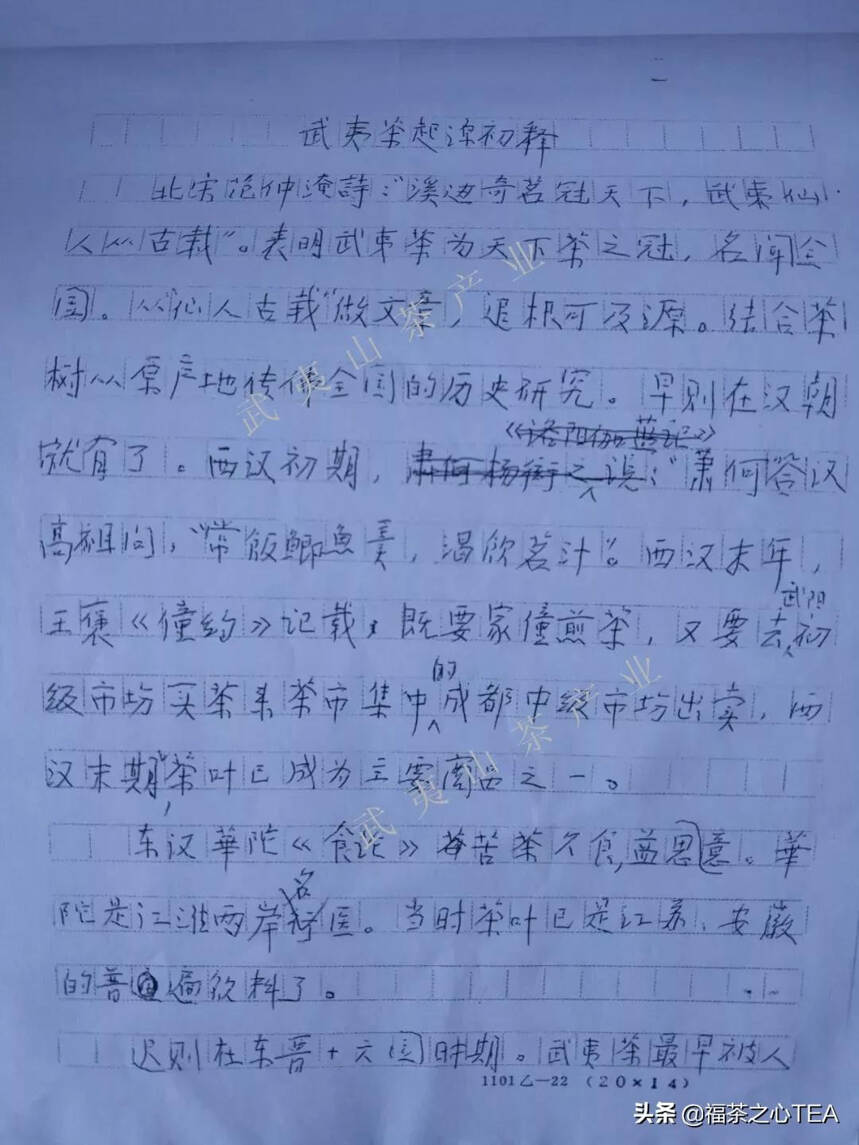 武夷茶起源初释
北宋范仲淹詩："溪边奇茗冠天下，武夷仙
人从古栽"。表明武夷茶为天下茶之冠，名闻全
国。从"仙人古栽"做文章，追根可及源。结合茶
树从原产地传佈全国的历史研究。早则在汉朝
《洛阳伽蓝记》
就有了。西汉初期，萧何杨衒之说："萧何答汉
高祖问，"常飯鲫魚羹，渴饮茗汁"。西汉末年，
武阳
王褒《僮约》记载，既要家僮煎茶，又要去初
的
级市场买茶来茶市集中成都中级市场出卖，西
汉末期，茶叶已成为主要商品之一。
东汉華陀《食论》苦茶久食，益思意。華
名
陀是江淮两岸医。当时茶叶已是江苏、安徽
的普遍饮料了。
迟则在东晋十六国时期。武夷茶最早被人
1101乙—22 (20×14)
武夷山茶产业
武夷山茶产业
头条 @福茶之心TEA